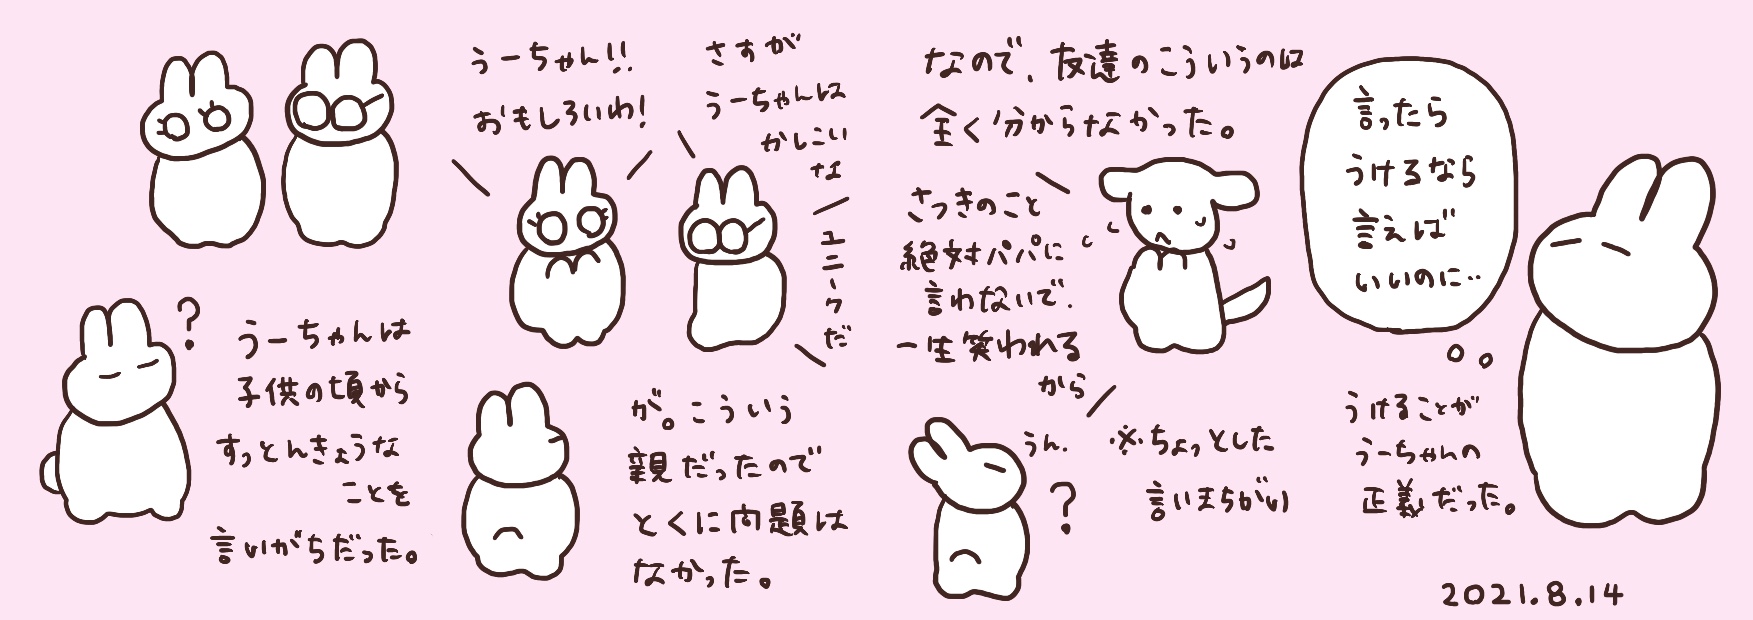 ?
うーちゃんは
子供の頃から
すっとんきょうな
ことを
言いがちだった。
うーちゃん!!
おもしろいわ!
さすが
うーちゃんは
かしこい
な
ユニークだ
が。こういう
親だったので
とくに問題は
なかった。
なので、友達のこういうのは
全く分からなかった。
さっきのこと
絶対パパに
言わないで、
一生笑われる
から
うん、
?
※ちょっとした
言いまちがい
言ったら
うけるなら
言えば
いいのに‥
うけることが
うーちゃんの
正義だった。
2021.8.14